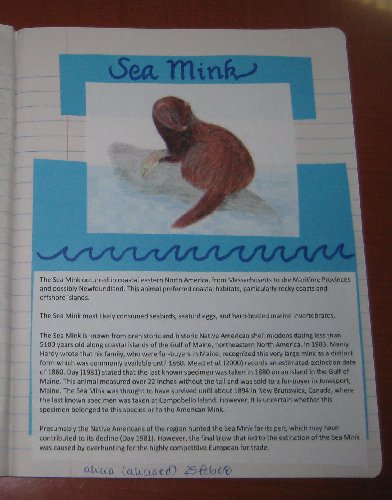 Sea Mink
The Sea Mink occurred in coastal eastern North America, from Massachusetts to the Maritime Provinces
and possibly Newfoundland. This animal preferred coastal habitats, particularly rocky coasts and
offshore islands.
The Sea Mink most likely consumed seabirds, seabird eggs, and hard-bodied marine invertebrates.
The Sea Mink is known from prehistoric and historic Native American shell middens dating less than
5100 years old along coastal islands of the Gulf of Maine, northeastern North America. In 1903, Manly
Hardy wrote that his family, who were fur-buyers in Maine, recognized this very large mink as a distinct
form which was commonly available until 1860. Mead et al. (2000) records an estimated extinction date
of 1860. Day (1981) stated that the last known specimen was taken in 1880 on an island in the Gulf of
Maine. This animal measured over 22 inches without the tail and was sold to a fur-buyer in Jonesport,
Maine. The Sea Mink was thought to have survived until about 1894 in New Brunswick, Canada, where
the last known specimen was taken at Campobello Island. However, it is uncertain whether this
specimen belonged to this species or to the American Mink.
Presumably the Native Americans of the region hunted the Sea Mink for its pelt, which may have
contributed to its decline (Day 1981). However, the final blow that led to the extinction of the Sea Mink
was caused by overhunting for the highly competitive European fur trade.